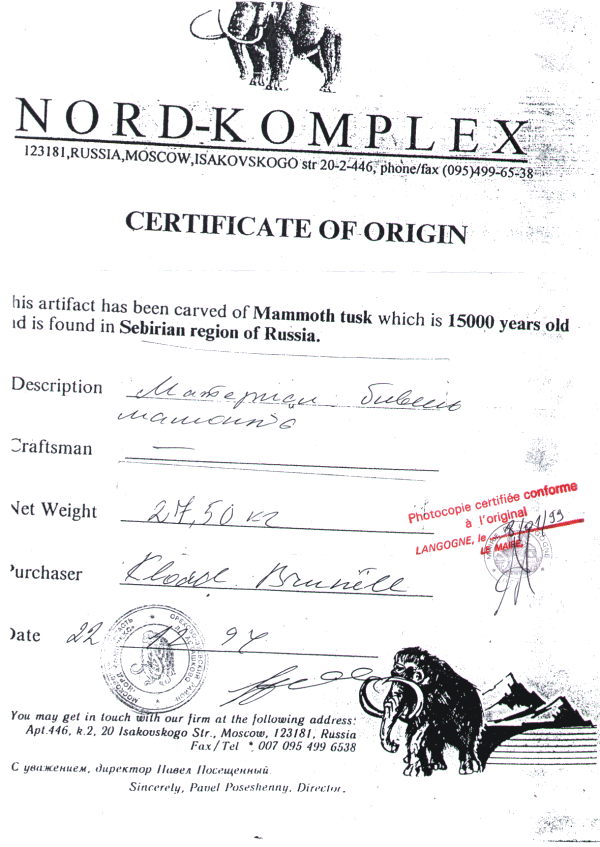 NORD-KOMPLEX
123181,RUSSIA,MOSCOW,ISAKOVSKOGO str 20-2-446, phone/fax (095)499-65-38
CERTIFICATE OF ORIGIN
his artifact has been carved of Mammoth tusk which is 15000 years old
nd is found in Sebirian region of Russia.
Description Материал бивень
мамонта
Craftsman —
Net Weight 27,50 кг
Photocopie certifiée conforme
à l'original
LANGOGNE, le 8/01/99
LE MAIRE,
Purchaser Kload Brunell
Date 22 12 97
You may get in touch with our firm at the following address:
Apt.446, k.2, 20 Isakovskogo Str., Moscow, 123181, Russia
Fax/Tel * 007 095 499 6538
С уважением, директор Павел Посещенный
Sincerely, Pavel Poseshenny, Director.